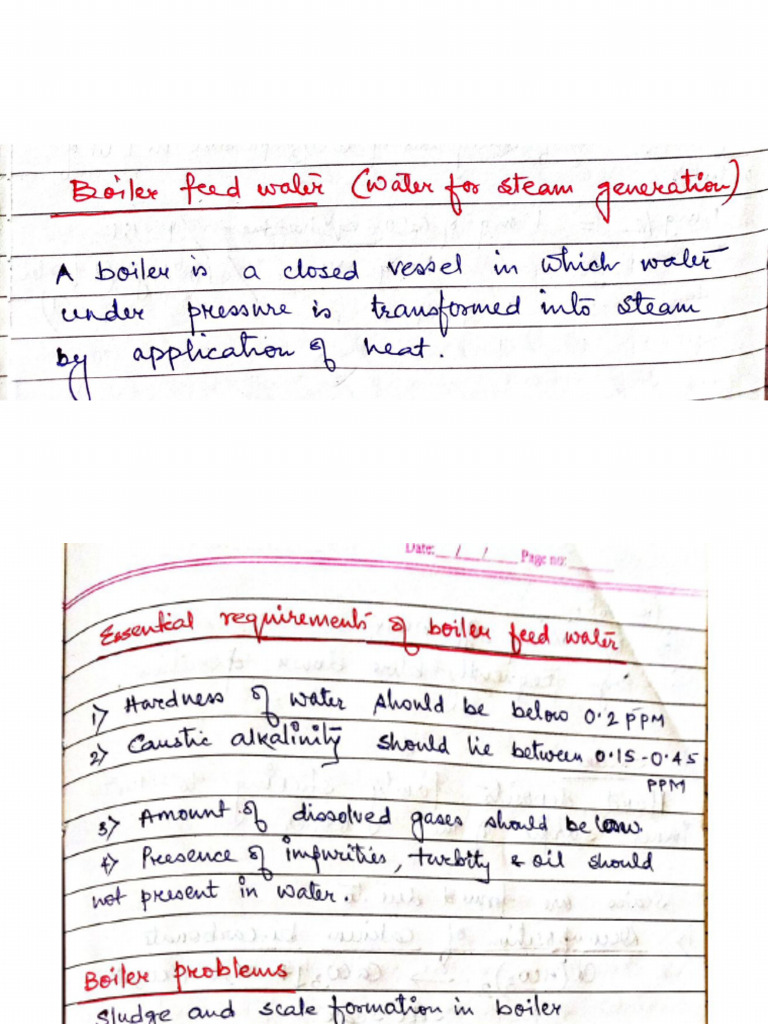 Boiler feed water (water for steam generation)
A boiler is a closed vessel in which water
under pressure is transformed into steam
by application of heat.
Date:__/__/__ Page no:______
Essential requirements of boiler feed water
1) Hardness of water should be below 0.2 PPM
2) Caustic alkalinity should lie between 0.15-0.45
PPM
3) Amount of dissolved gases should be low.
4) Presence of impurities, turbity & oil should
not present in water.
Boiler problems
Sludge and scale formation in boiler